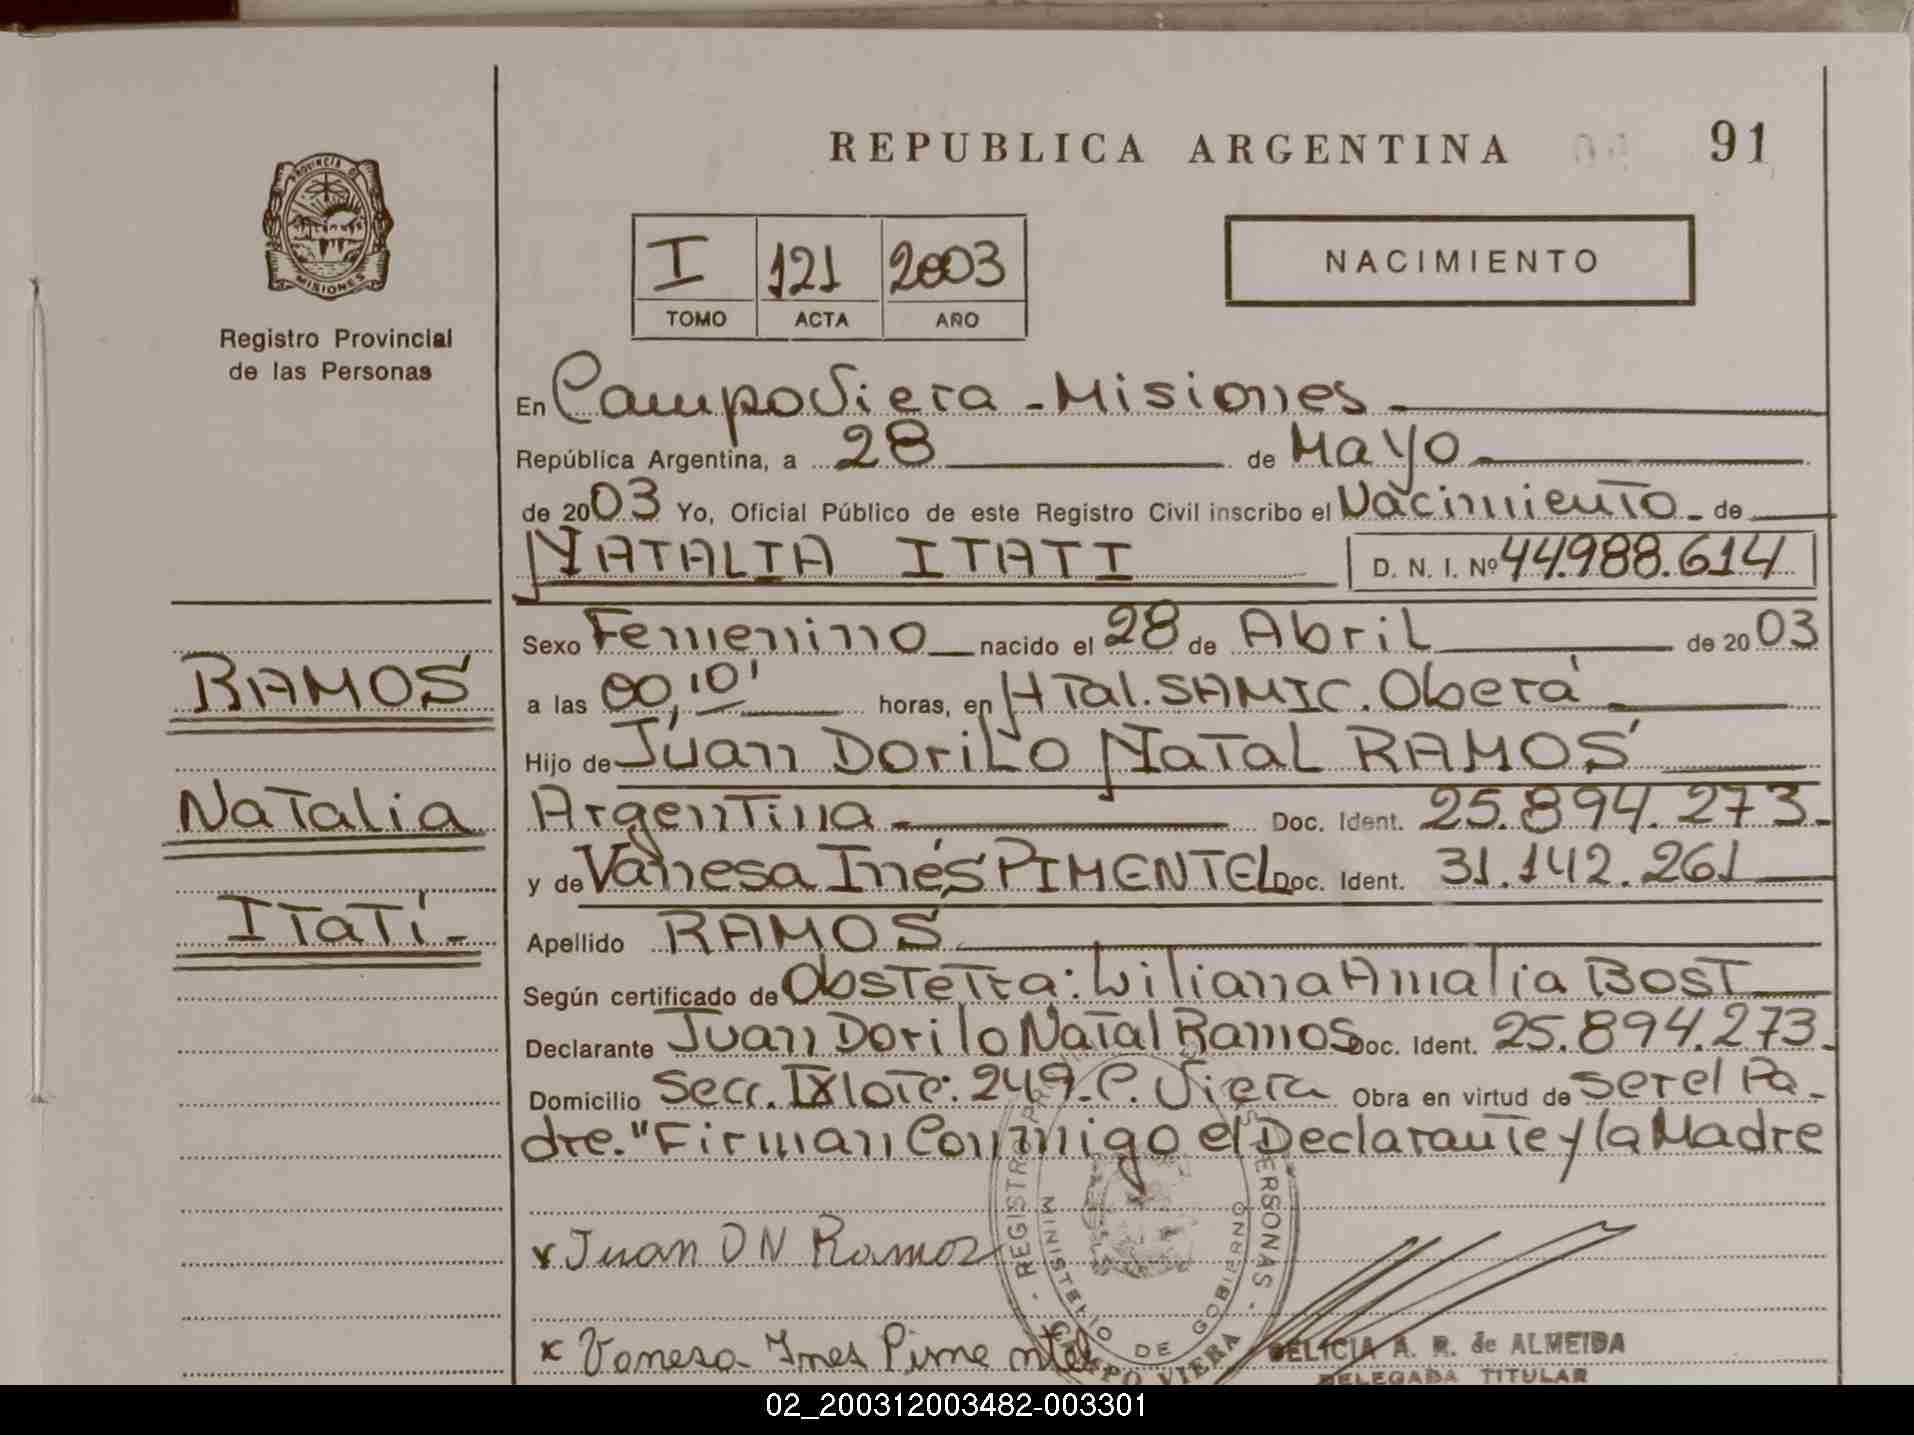 REPUBLICA ARGENTINA 91
PROVINCIA DE
MISIONES
Registro Provincial
de las Personas
I 121 2003
TOMO ACTA AÑO
NACIMIENTO
En Campo Viera - Misiones -
República Argentina, a 28 de Mayo
de 2003 Yo, Oficial Público de este Registro Civil inscribo el Nacimiento - de
NATALIA ITATI D. N. I. Nº 44.988.614
Sexo Femenino nacido el 28 de Abril de 2003
a las 00,10' horas, en HTal. SAMIC. Oberá
Hijo de Juan Dorilo Natal RAMOS
Argentina Doc. Ident. 25.894.273.-
y de Vanesa Inés PIMENTEL Doc. Ident. 31.142.261
Apellido RAMOS
Según certificado de Obstetra: Liliana Amalia BOST
Declarante Juan Dorilo Natal Ramos Doc. Ident. 25.894.273.-
Domicilio Secc. IX lote: 249. C. Viera Obra en virtud de ser el Pa-
dre." Firman Conmigo el Declarante y la Madre
RAMOS
Natalia
Itatí-
x Juan D N Ramos
x Vanesa Ines Pimentel
MINISTERIO DE GOBIERNO
CAMPO VIERA
DELICIA A. R. de ALMEIDA
DELEGADA TITULAR
02_200312003482-003301